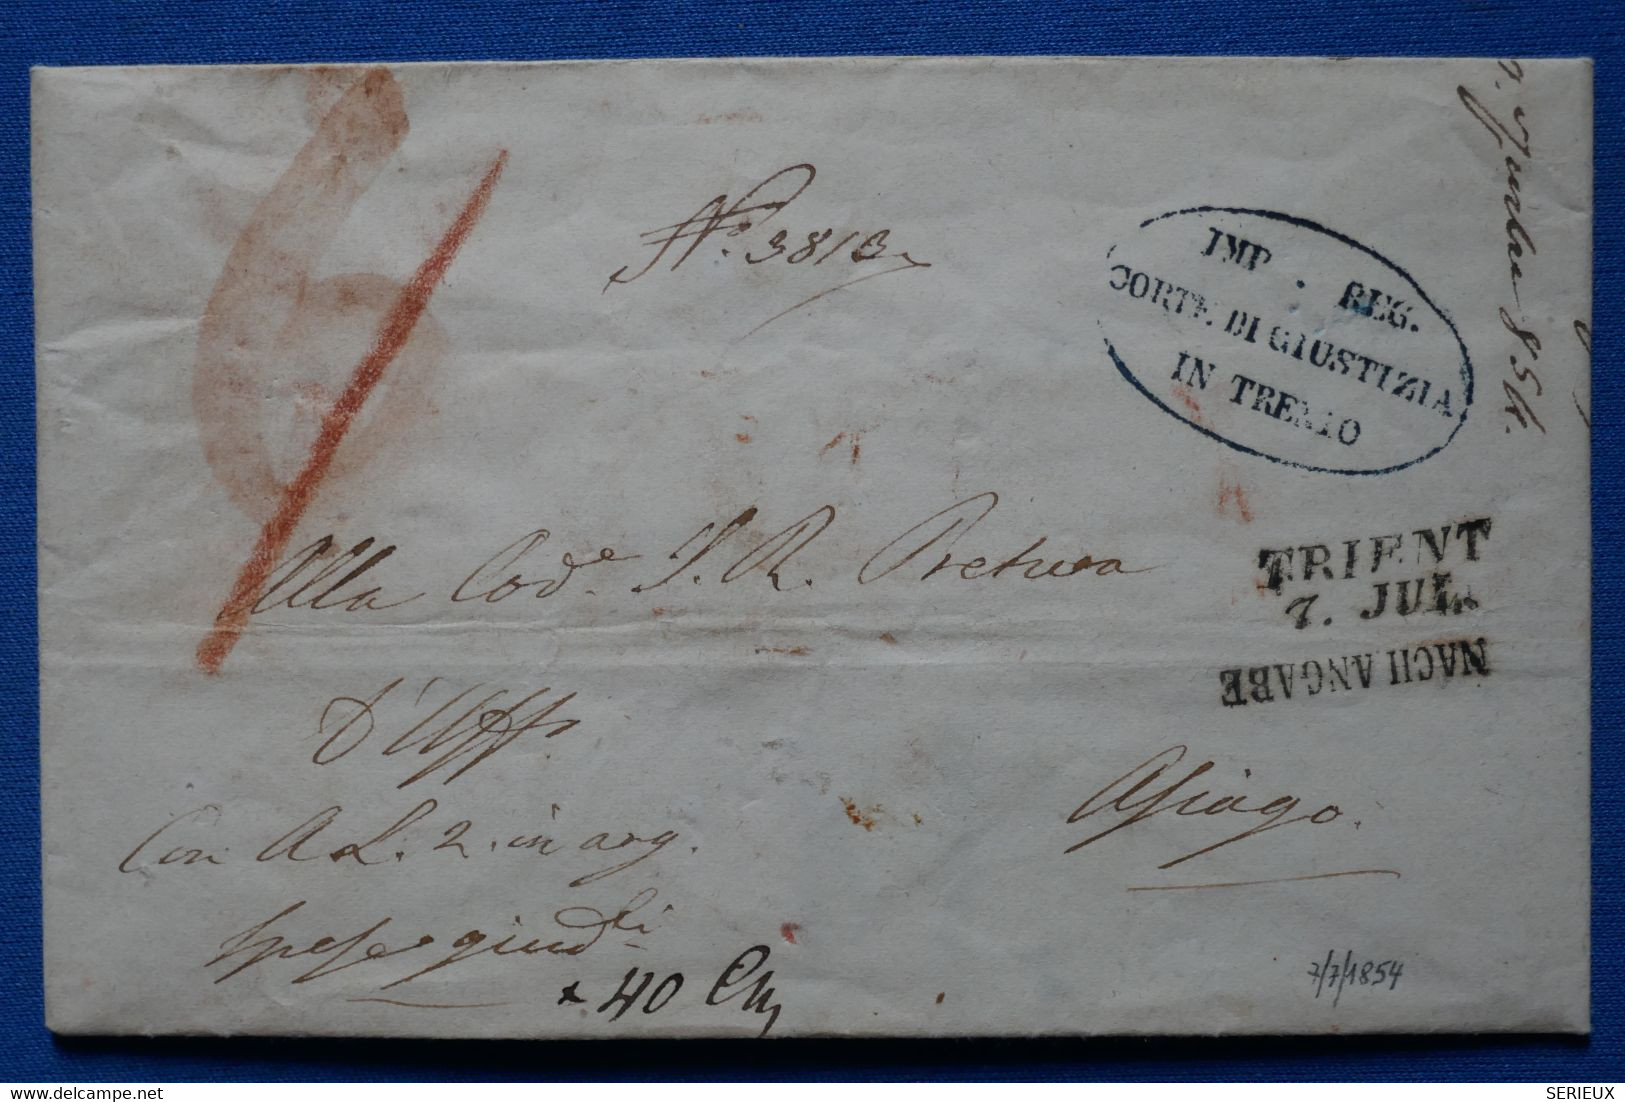 No. 3813
IMP. REG.
CORTE DI GIUSTIZIA
IN TRENTO
1854.
Alla Lod.e I. R. Pretura
TRIENT
7. JUL.
NACH ANGABE
d'Uff.
Asiago.
Con A L. 2. in arg.
spese giud.li
40
7/7/1854
delcampe.net
SERIEUX